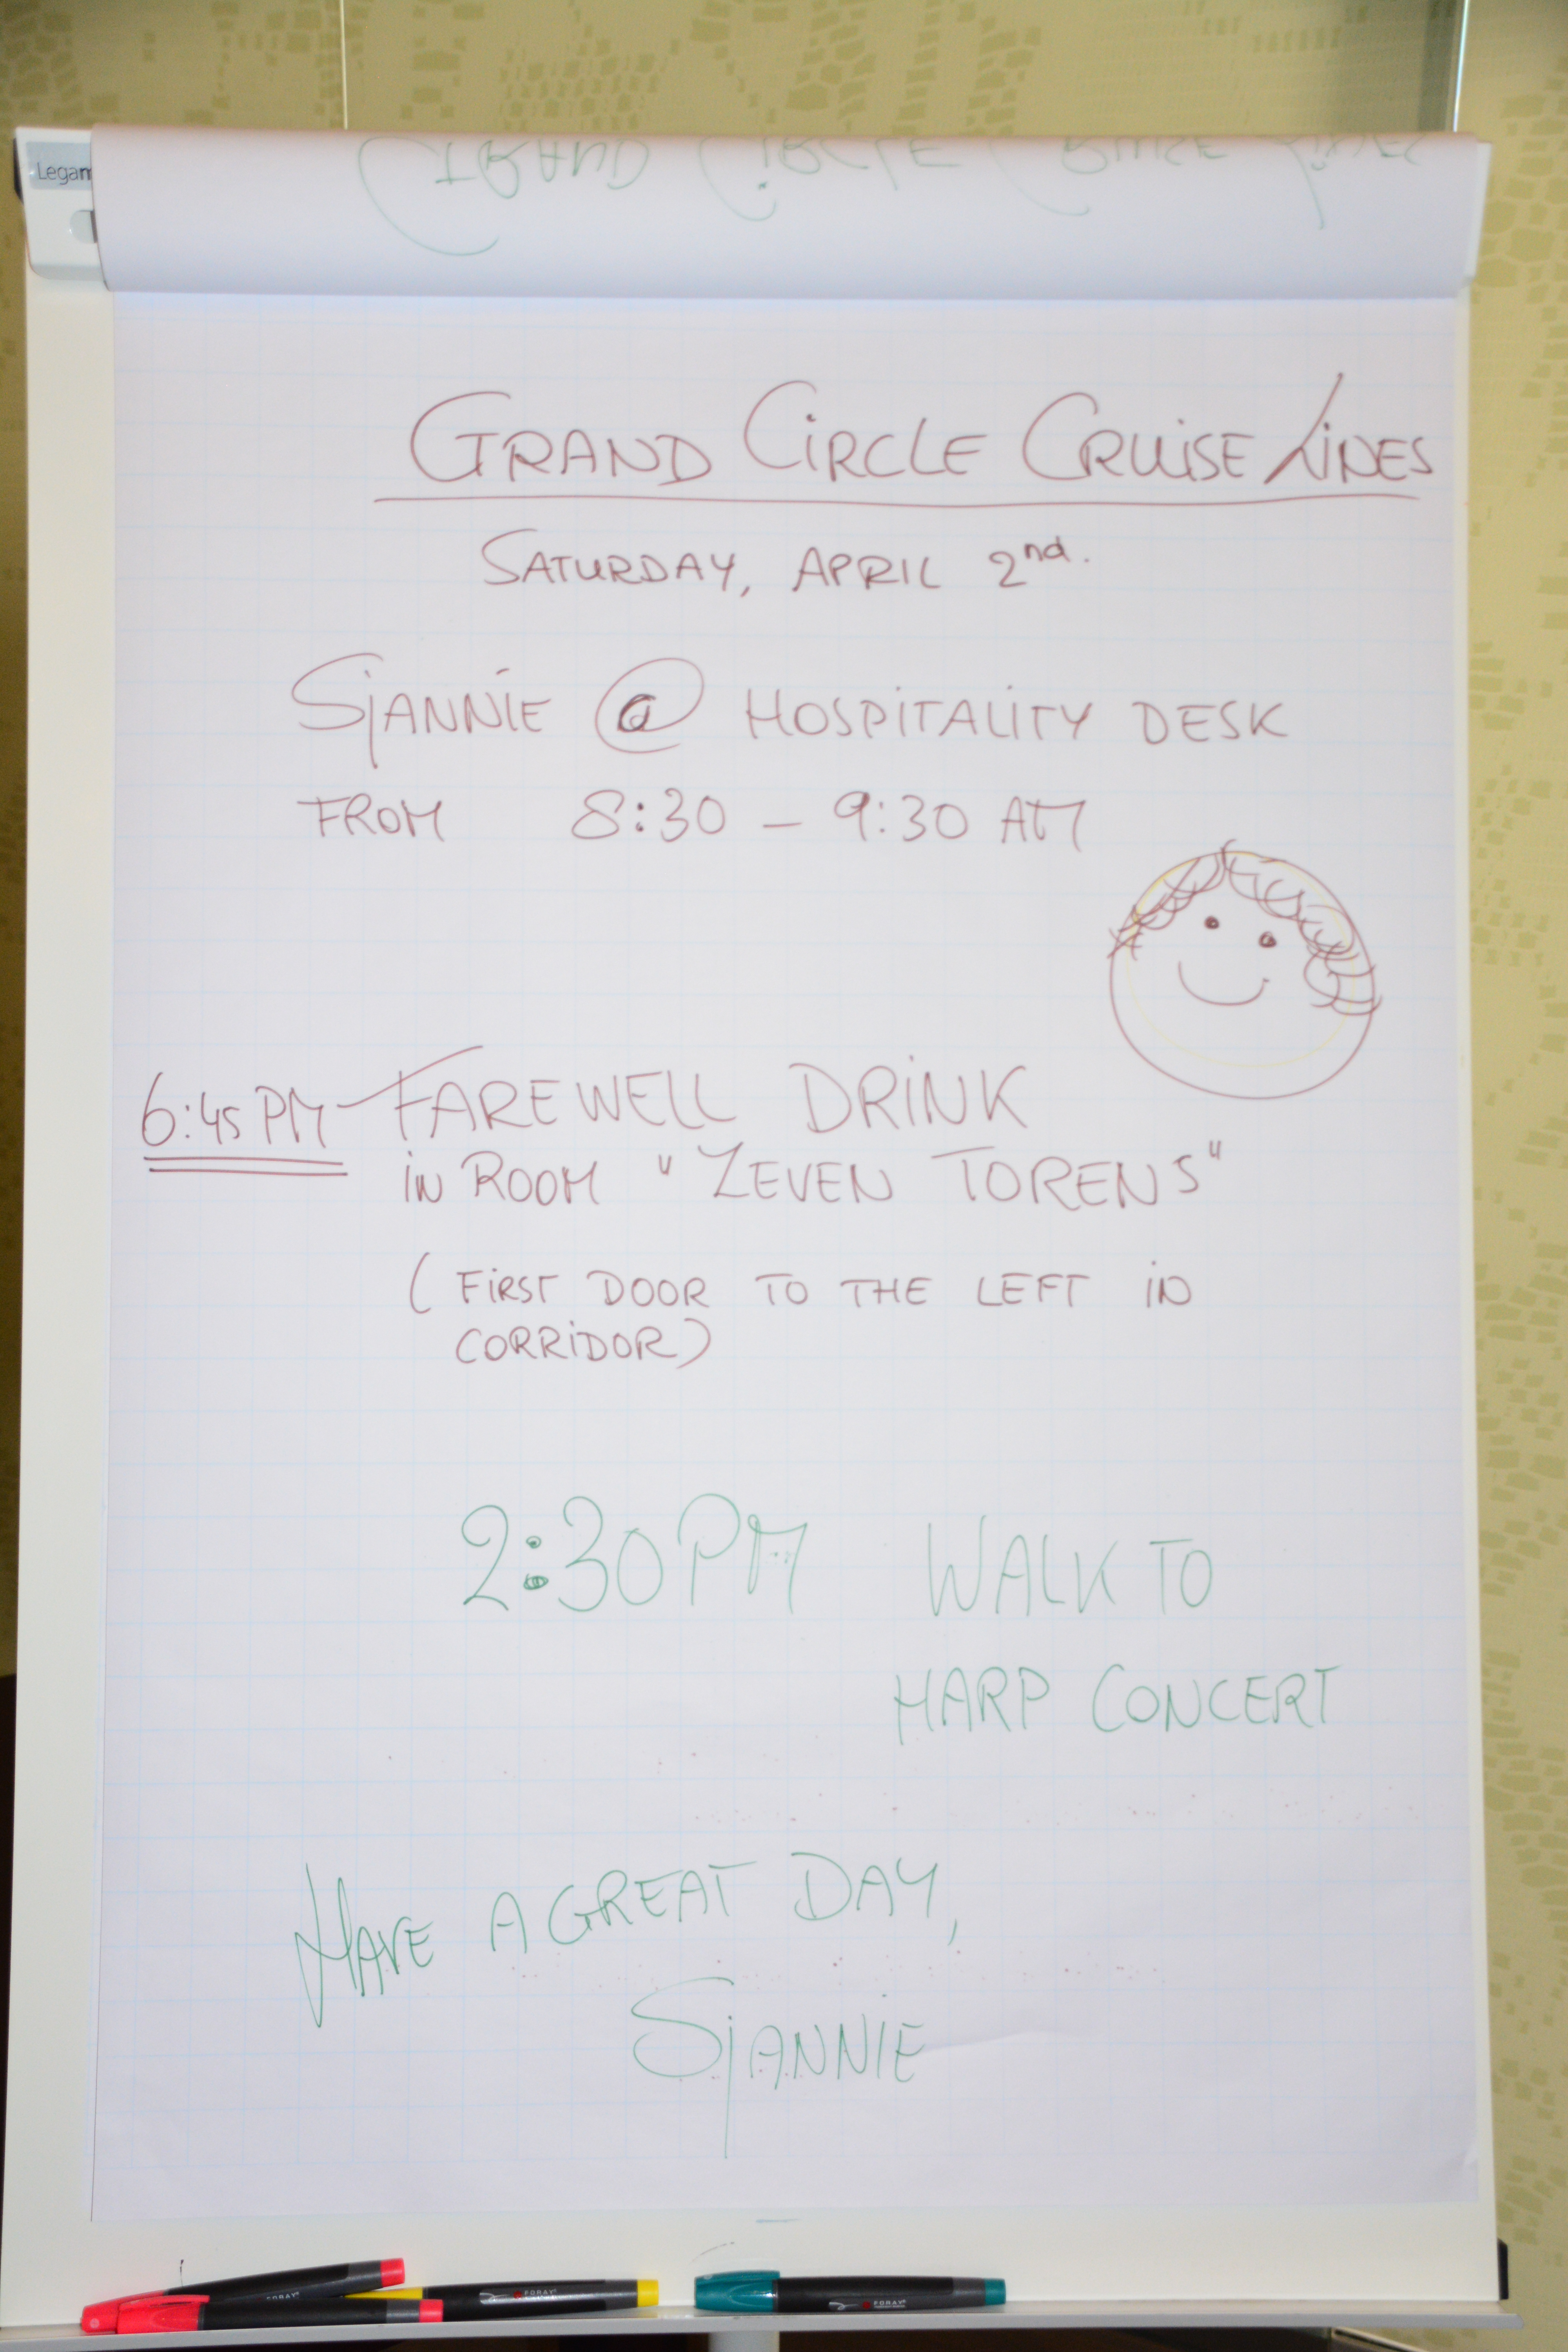 Legam
GRAND CIRCLE CRUISE LINES
GRAND CIRCLE CRUISE LINES
SATURDAY, APRIL 2nd.
SJANNIE @ HOSPITALITY DESK
FROM 8:30 – 9:30 AM
6:45 PM – FAREWELL DRINK
IN ROOM "ZEVEN TORENS"
(FIRST DOOR TO THE LEFT IN
CORRIDOR)
2:30PM WALK TO
HARP CONCERT
HAVE A GREAT DAY,
SJANNIE
FORAY
FORAY
FORAY
FORAY